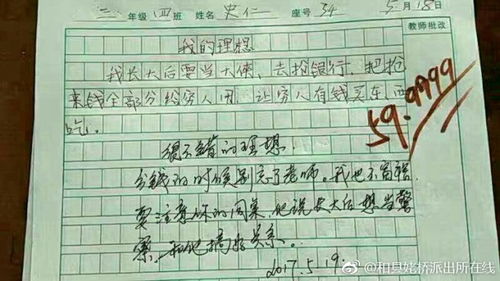 三年级四班 姓名史仁 座号34 5月18日
教师批改
我的理想
我长大后要当大侠,去抢银行,把抢
来钱全部分给穷人用,让穷人有钱买东西
吃。
59.9999
很不错的理想
分钱的时候别忘了老师。我也不富裕
要注意你的同桌,他说长大后想当警
察,和他搞好关系。
2017.5.19.
@和县姥桥派出所在线